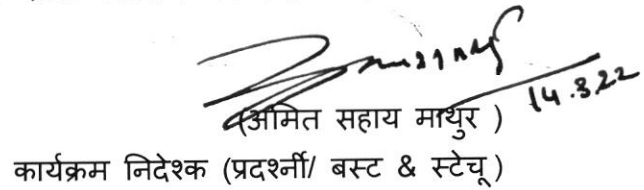 14.3.22
(अमित सहाय माथुर )
कार्यक्रम निदेश्क (प्रदर्श्नी/ बस्ट & स्टेचू )